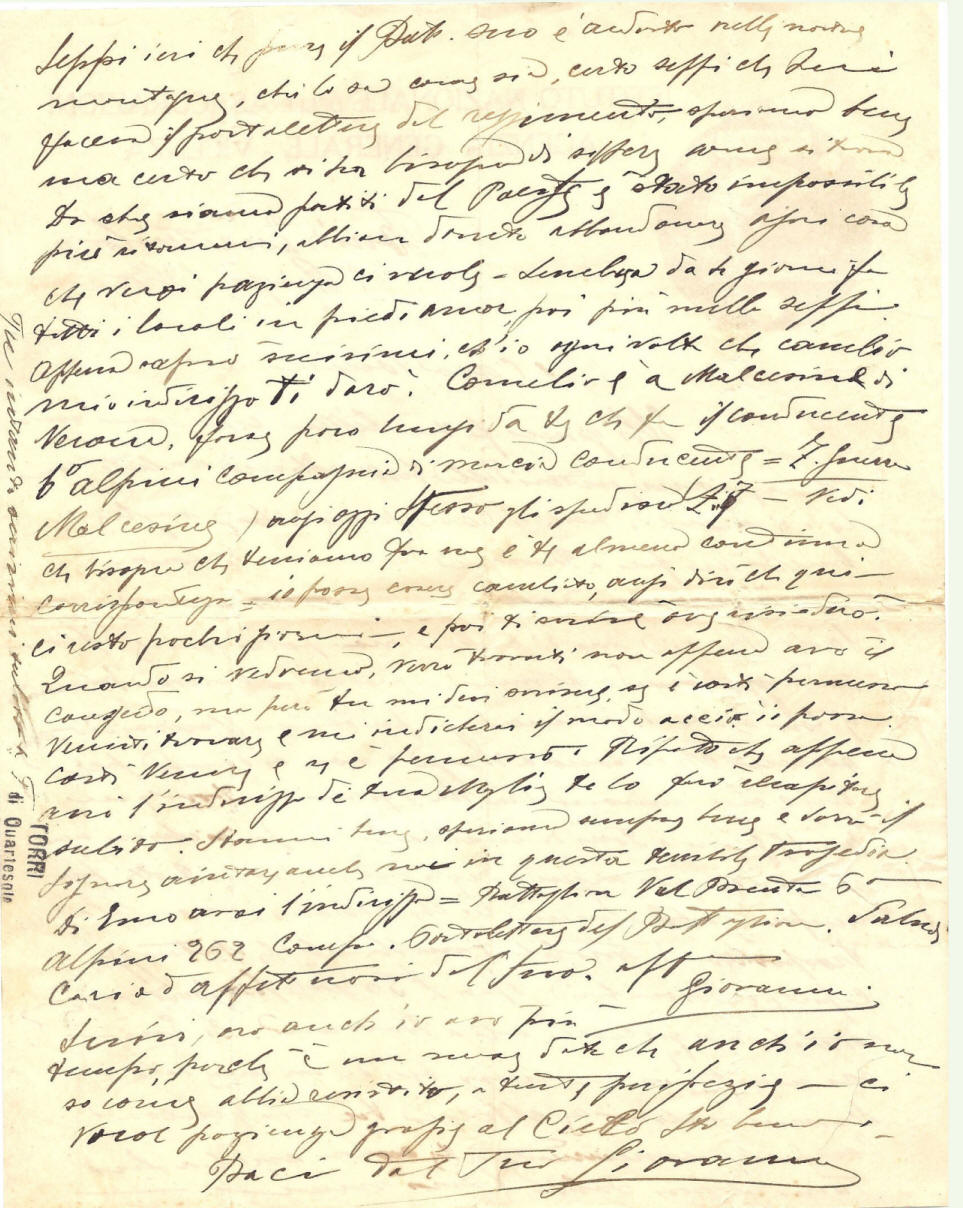 Seppi ieri che il Batt. suo è andato nelle nostre
montagne, chi lo sa come sia, certo seppi che
faceva il portalettere del reggimento, speriamo bene
ma certo che vi ha bisogno di sapere come si trova
Da che siamo partiti del è stato impossibile
più abbiam dovuto abbandonare ogni cosa
che pazienza ci vuole - da te giorni fa
tutti i locali in piedi ancor, poi più nulla seppi.
Appena scrivimi, ch'io ogni volta che cambio
mio indirizzo Ti darò. Cornelio è a Malcesine di
Verona, forse poco lungi da te che fa il conducente
6° alpini compagnia di marcia conducente = Z. guerra
Malcesine) oggi stesso gli spedisco - Vedi
che bisogna che teniamo fra me e te almeno continua
corrispondenza = io posso essere cambiato, anzi dirò che qui
ci resto pochi giorni -, e poi ti
Quando si vedremo, verrò trovarti non appena avrò il
congedo, ma però tu mi devi scrivere se è costì permesso
venirti trovare e mi indicherai il modo acciò io possa
costì venire e se è permesso. Ripeto che appena
avrò l'indirizzo di tua Moglie te lo farò recapitare
subito. Stammi bene, speriamo sempre bene e sarà il
Signore aiutare anche noi in questa terribile tragedia.
Di Emo avrai l'indirizzo = Battaglion Val Brenta 6°
Alpini 262 Comp. Portalettere del Battaglion. Saluti
Cari ed affettuosi del tuo. aff
Giovanni.
Scrivi, ora anch'io avrò più
tempo, perchè è un mese che anch'io non
so come abbia resistito, a tante peripezie - ci
vuol pazienza grazie al Cielo sto bene -
Baci dal Tuo Giovanni
Tu intanto scrivimi subito a
TORRI
di Quartesolo